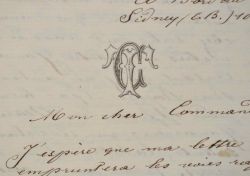 A Bord du
Sidney (C.B.)
Mon cher Comman
J'espère que ma lettre
empruntera les voies ra